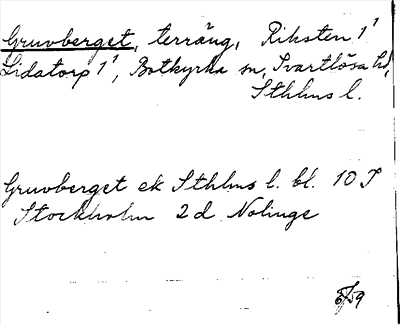 Gruvberget, terräng, Riksten 1¹
Lidatorp 1¹, Botkyrka sn, Svartlösa hd,
Sthlms l.
Gruvberget ek Sthlms l. bl. 10 I
Stockholm 2d Nolinge